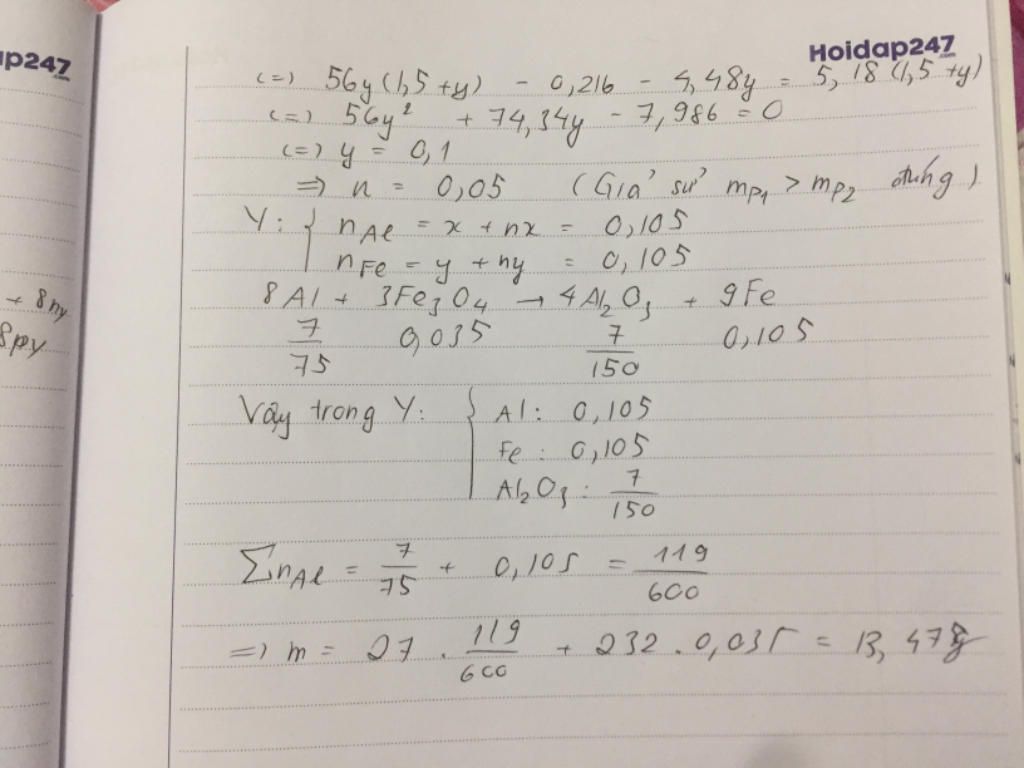 ap247
Hoidap247
.com
(=) 56y(1,5+y) - 0,216 - 4,48y = 5,18(1,5+y)
(=) 56y² + 74,34y - 7,986 = 0
(=) y = 0,1
=> n = 0,05 (Giả sử mp₁ > mp₂ đúng)
Y: { nAl = x + nx = 0,105
nFe = y + ny = 0,105
+ 8ny
8py
8Al + 3Fe₃O₄ → 4Al₂O₃ + 9Fe
7/75 0,035 7/150 0,105
Vậy trong Y: { Al: 0,105
Fe: 0,105
Al₂O₃: 7/150
∑nAl = 7/75 + 0,105 = 119/600
=> m = 27 . 119/600 + 232 . 0,035 = 13,475g